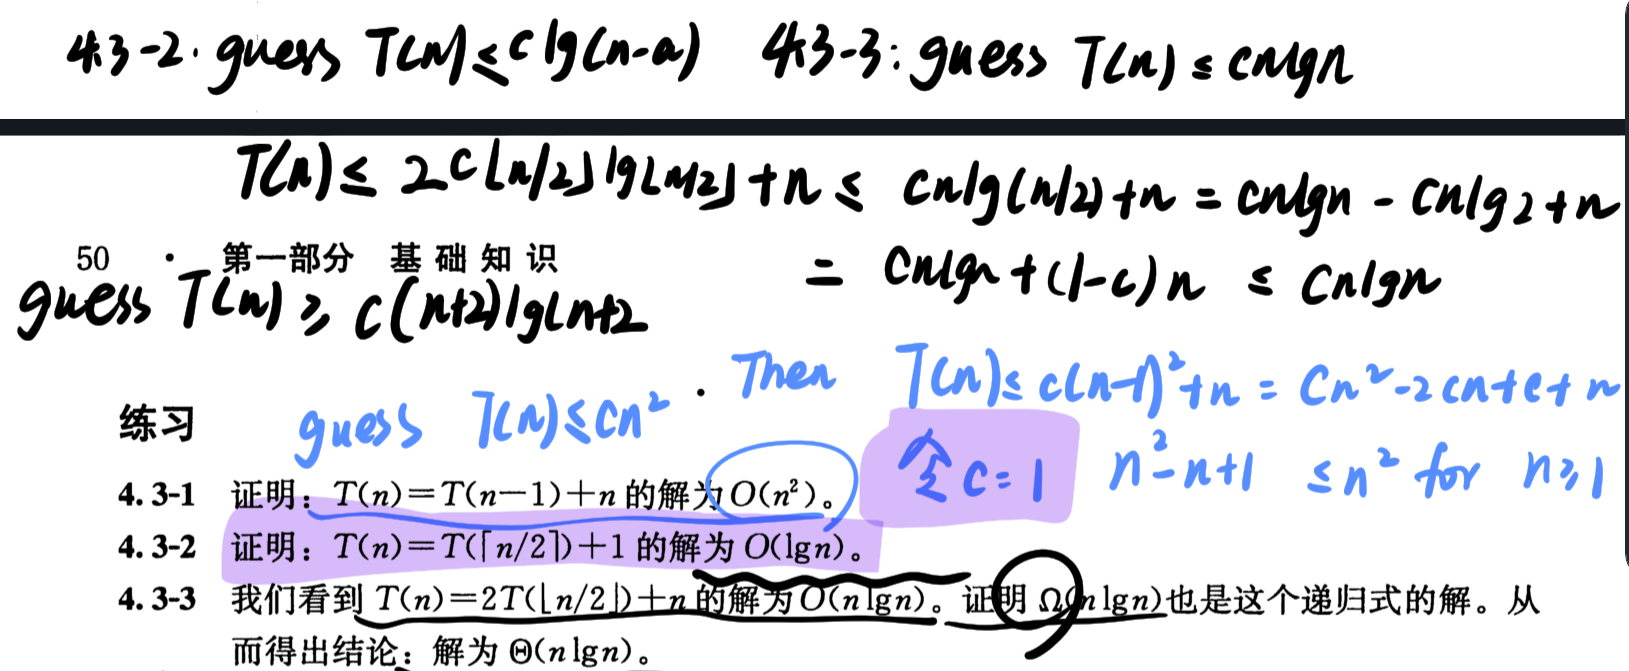 4.3-2. guess T(n) ≤ c lg(n-a) 4.3-3: guess T(n) ≤ cnlgn
T(n) ≤ 2c⌊n/2⌋lg⌊n/2⌋+n ≤ cnlg(n/2)+n = cnlgn - cnlg2+n
50 · 第一部分 基础知识
= cnlgn+(1-c)n ≤ cnlgn
guess T(n) ≥ c(n+2)lg(n+2
guess T(n)≤cn² . Then T(n)≤c(n-1)²+n = Cn²-2cn+c+n
练习
令 c=1 n²-n+1 ≤n² for n≥1
4.3-1 证明：T(n)=T(n-1)+n的解为O(n²)。
4.3-2 证明：T(n)=T(⌈n/2⌉)+1的解为O(lgn)。
4.3-3 我们看到T(n)=2T(⌊n/2⌋)+n的解为O(nlgn)。证明Ω(nlgn)也是这个递归式的解。从
而得出结论：解为Θ(nlgn)。